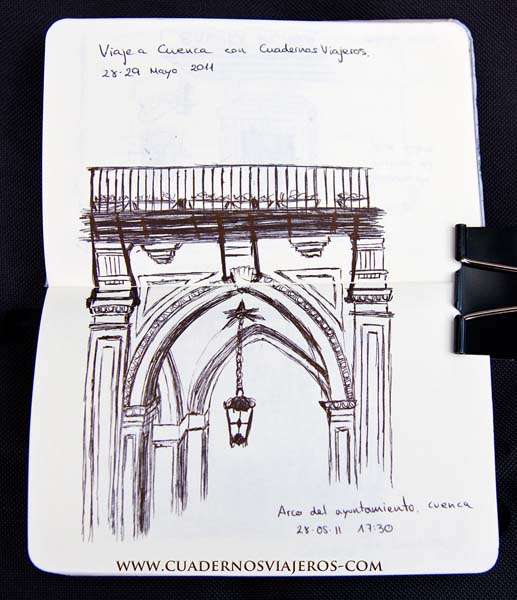 Viaje a Cuenca con Cuadernos Viajeros,
28-29 Mayo 2011
Arco del ayuntamiento, Cuenca
28·05·11 17:30
WWW.CUADERNOSVIAJEROS-COM